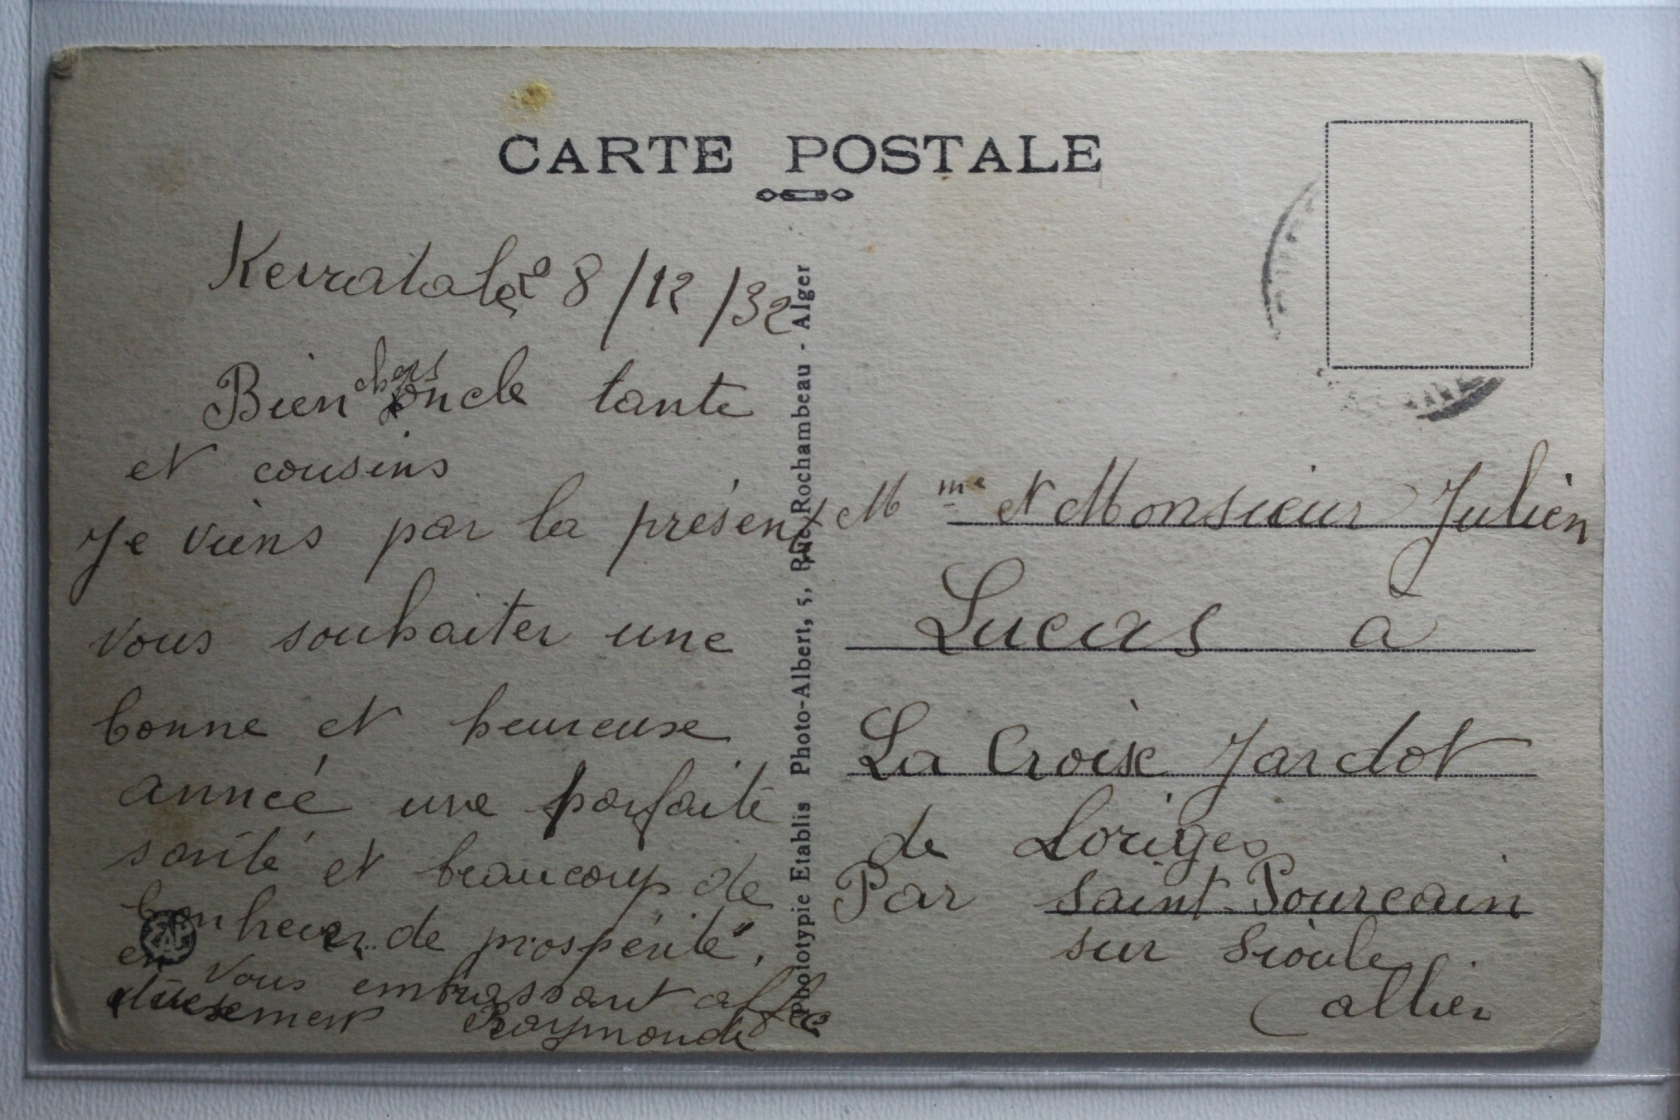 CARTE POSTALE
8/12/32
Bien chers oncle tante
et cousins
Je viens par la présente
vous souhaiter une
bonne et heureuse
année une parfaite
santé et beaucoup de
bonheur de prospérité.
en vous embrassant affec
tueusement Raymonde
Phototypie Etablis Photo-Albert, 5, Rue Rochambeau - Alger
Mme et Monsieur Julien
Lucas à
La Croix Jardot
de Loriges
Par Saint-Pourcain
sur Sioule
Allier